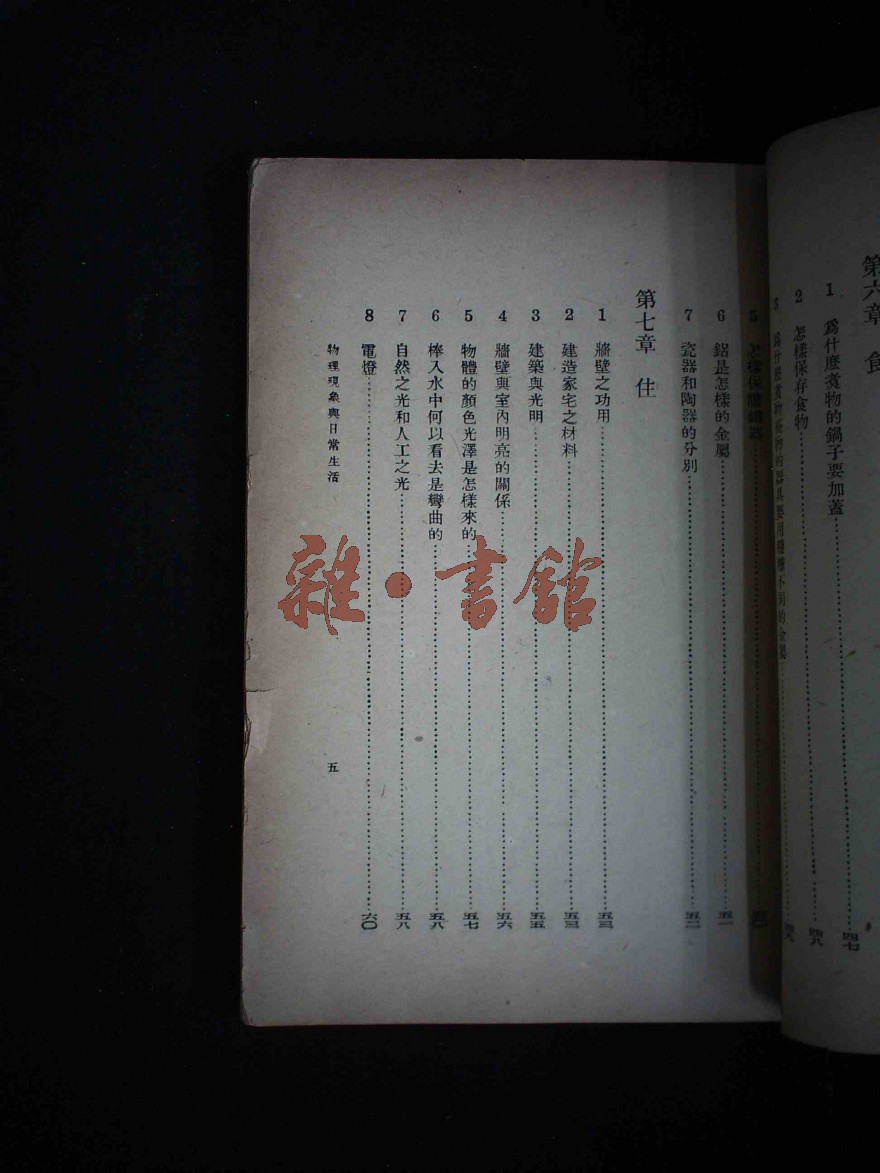 第六章 食
1 爲什麽煑物的鍋子要加蓋 四七
2 怎樣保存食物 四八
3 爲什麽煑物
的器具要用種種不同的金屬 四九
5 怎樣保護 五〇
6 鋁是怎樣的金屬 五一
7 瓷器和陶器的分別 五二
第七章 住
1 牆壁之功用 五三
2 建造家宅之材料 五三
3 建築與光明 五五
4 牆壁與室內明亮的關係 五六
5 物體的顏色光澤是怎樣來的 五七
6 棒入水中何以看去是彎曲的 五八
7 自然之光和人工之光 五八
8 電燈 六〇
物理現象與日常生活
五
雜·書館